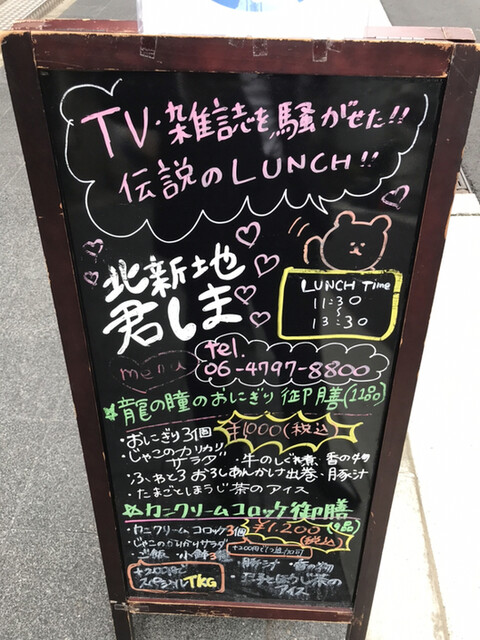 TV・雑誌を騒がせた!!
伝説のLUNCH!!
北新地
君しま
LUNCH Time
11:30
〜
13:30
menu
Tel.
06-4797-8800
☆龍の瞳のおにぎり御膳(11品)
・おにぎり3個
¥1000(税込)
・じゃこのカリカリサラダ
・牛のしぐれ煮・香の物
・ふわとろおろしあんかけ出巻・豚汁
・たまごとほうじ茶のアイス
☆カニクリームコロッケ御膳
・カニクリームコロッケ3個
¥1.200(9品)
(税込)
・じゃこのカリカリサラダ
・ご飯 ・小鉢3種
・豚汁 ・香の物
アイス
+200円で
スペシャルTKG